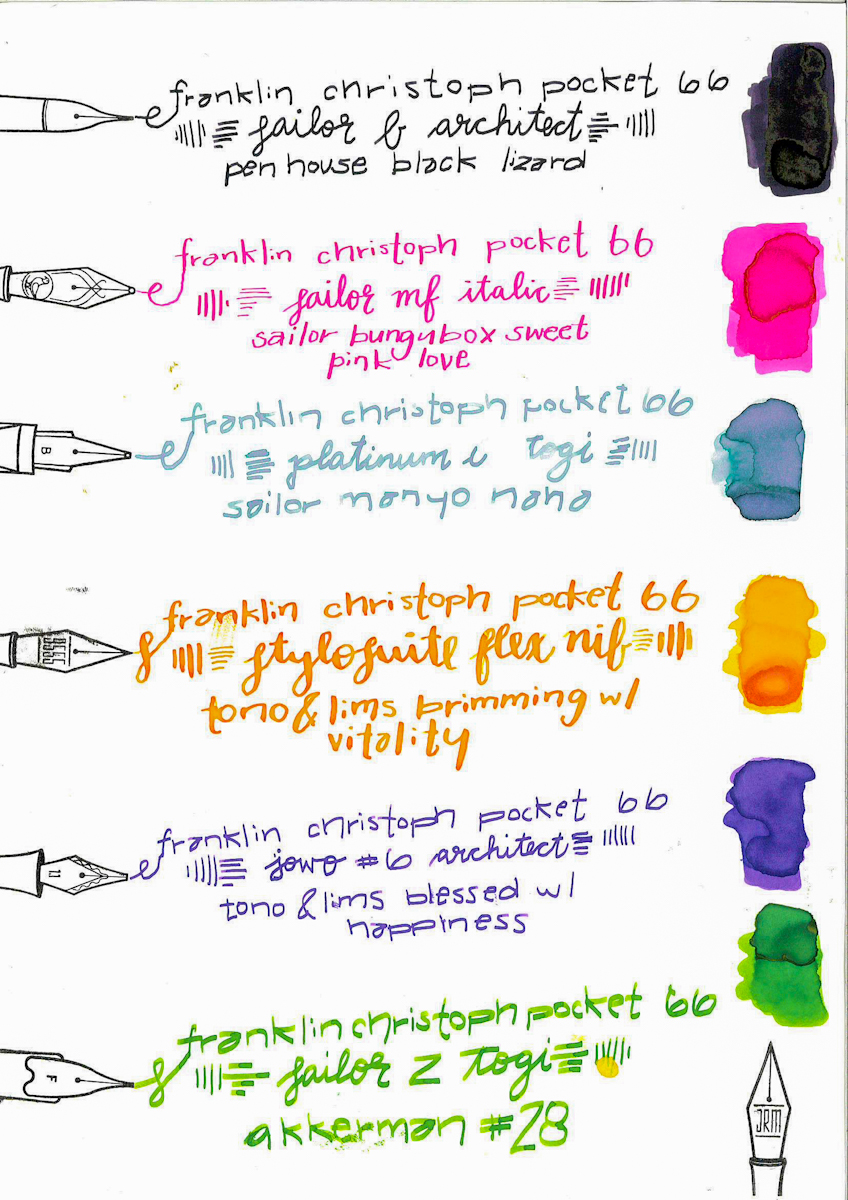 franklin christoph pocket 66
sailor b architect
pen house black lizard
franklin christoph pocket 66
sailor mf italic
sailor bungubox sweet
pink love
franklin christoph pocket 66
B
platinum c togi
sailor manyo haha
franklin christoph pocket 66
stylosuite flex nib
tono & lims brimming w/
vitality
franklin christoph pocket 66
jowo #6 architect
tono & lims blessed w/
happiness
franklin christoph pocket 66
sailor z togi
F
akkerman #28
JRM